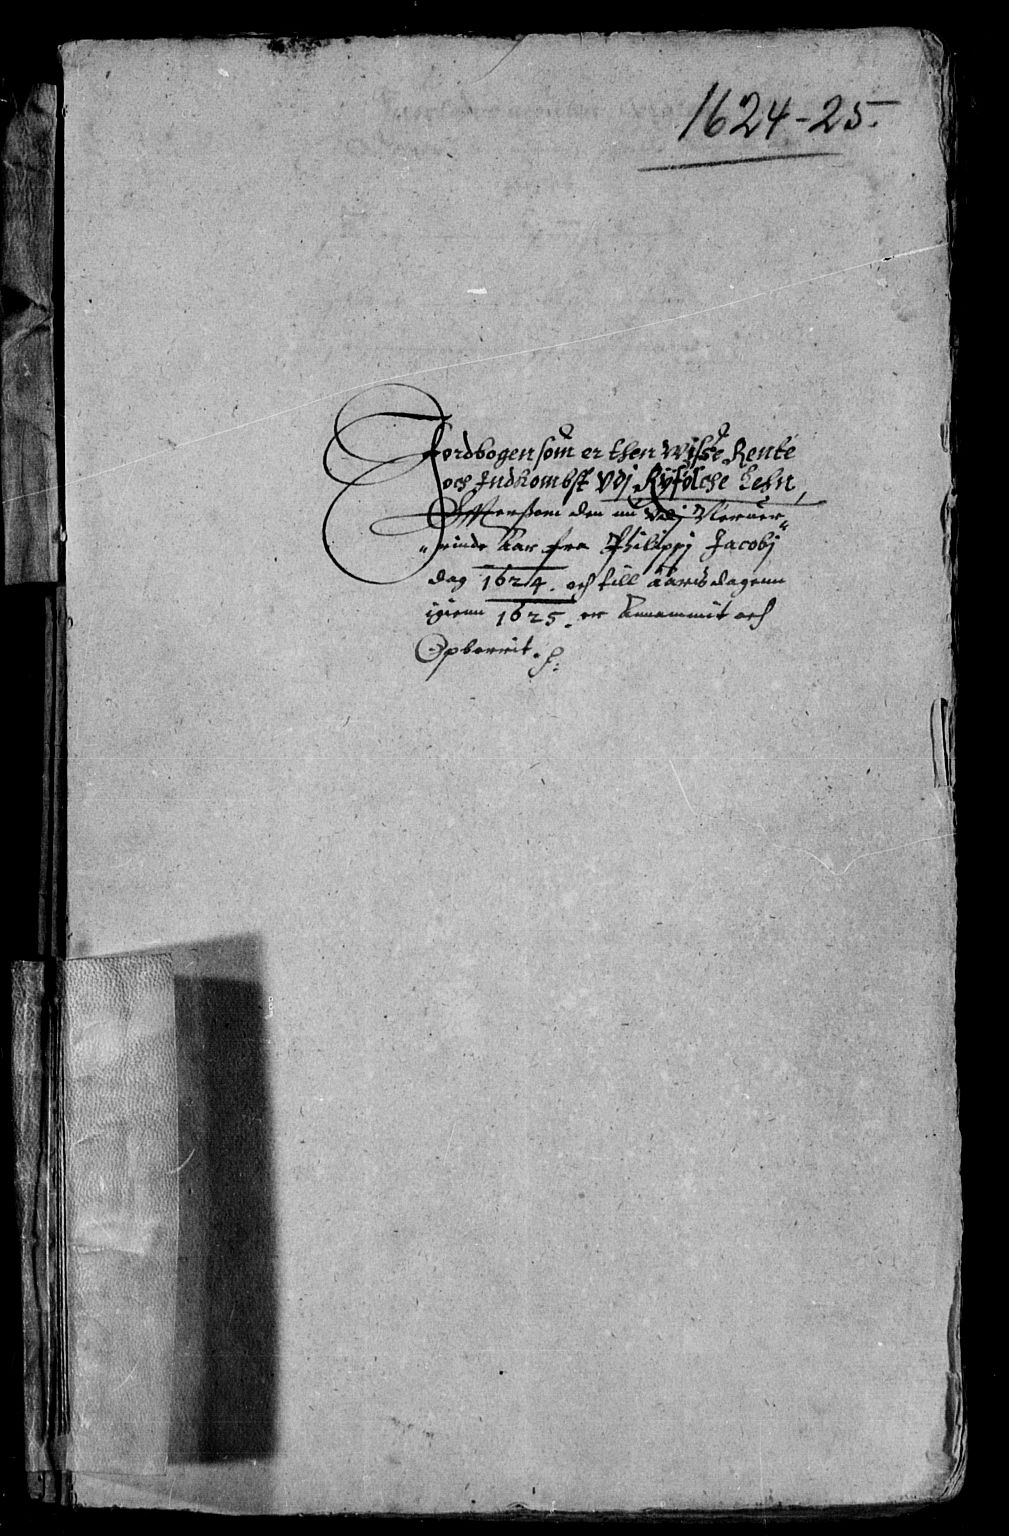 1624-25.
Jordbogen som er then Wisse Rente
och Indkombst Vdj Ryfylche Lehn,
Effterssom den nu Vdj Neruer„
„rinde Aar fra Philippj Jacobj
dag 1624. och till Aarisdagenn
igienn 1625. er Annammit och
Opborrit.